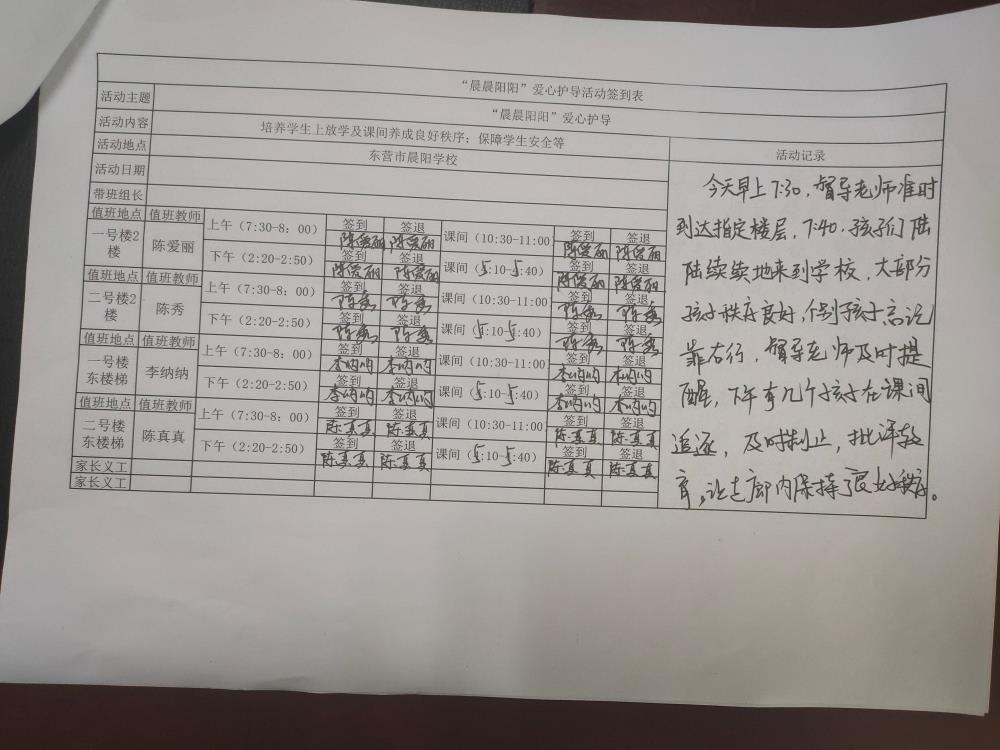 “晨晨阳阳”爱心护导活动签到表
活动主题 “晨晨阳阳”爱心护导
活动内容 培养学生上放学及课间养成良好秩序；保障学生安全等
活动地点 东营市晨阳学校 活动记录
活动日期
带班组长
值班地点 值班教师 上午（7:30-8：00） 签到 签退 课间（10:30-11:00 签到 签退
一号楼2楼 陈爱丽 陈爱丽 陈爱丽 陈爱丽 陈爱丽
下午（2:20-2:50） 签到 签退 课间（5:10-5:40） 签到 签退
陈爱丽 陈爱丽 陈爱丽 陈爱丽
值班地点 值班教师 上午（7:30-8：00） 签到 签退 课间（10:30-11:00 签到 签退
二号楼2楼 陈秀 陈秀 陈秀 陈秀 陈秀
下午（2:20-2:50） 签到 签退 课间（5:10-5:40） 签到 签退
陈秀 陈秀 陈秀 陈秀
值班地点 值班教师 上午（7:30-8：00） 签到 签退 课间（10:30-11:00 签到 签退
一号楼东楼梯 李纳纳 李纳纳 李纳纳 李纳纳 李纳纳
下午（2:20-2:50） 签到 签退 课间（5:10-5:40） 签到 签退
李纳纳 李纳纳 李纳纳 李纳纳
值班地点 值班教师 上午（7:30-8：00） 签到 签退 课间（10:30-11:00 签到 签退
二号楼东楼梯 陈真真 陈真真 陈真真 陈真真 陈真真
下午（2:20-2:50） 签到 签退 课间（5:10-5:40） 签到 签退
陈真真 陈真真 陈真真 陈真真
家长义工
家长义工
今天早上7:30，督导老师准时
到达指定楼层，7:40，孩子们陆
陆续续地来到学校，大部分
孩子秩序良好，个别孩子忘记
靠右行，督导老师及时提
醒，下午有几个孩子在课间
追逐，及时制止，批评教
育，让走廊内保持了良好秩序。